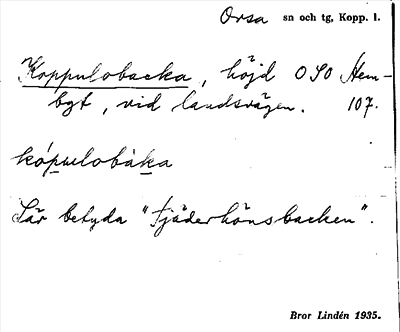 Orsa sn och tg, Kopp. l.
Koppulobacka, höjd OSO Hem-
bgt, vid landsvägen. 107.
kópulobàka
Lär betyda "Tjäderhönsbacken".
Bror Lindén 1935.